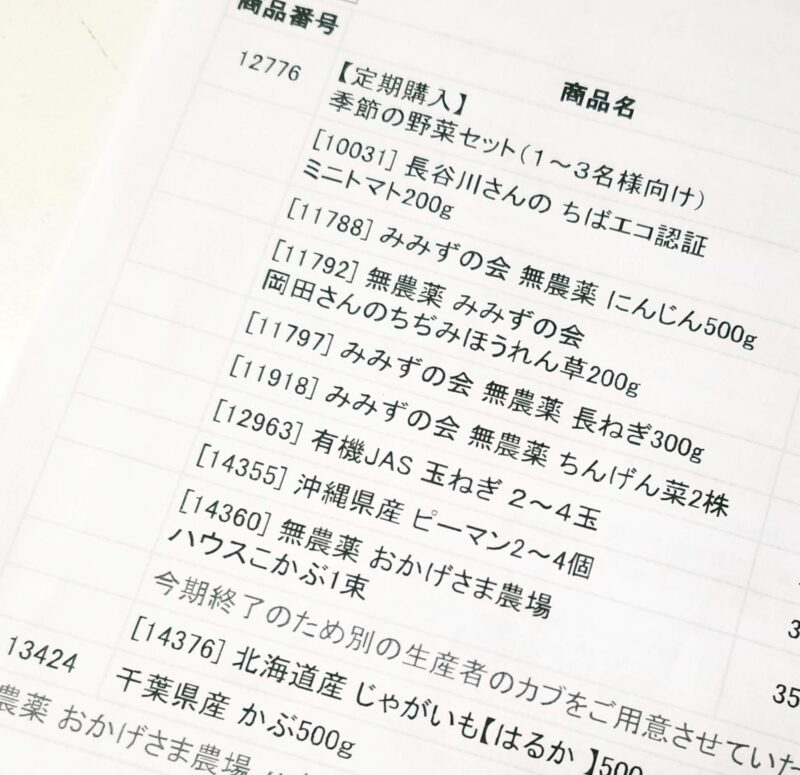 商品番号
商品名
12776
【定期購入】
季節の野菜セット（１～３名様向け）
[10031] 長谷川さんの ちばエコ認証
ミニトマト200g
[11788] みみずの会 無農薬 にんじん500g
[11792] 無農薬 みみずの会
岡田さんのちぢみほうれん草200g
[11797] みみずの会 無農薬 長ねぎ300g
[11918] みみずの会 無農薬 ちんげん菜2株
[12963] 有機JAS 玉ねぎ ２～４玉
[14355] 沖縄県産 ピーマン2～4個
[14360] 無農薬 おかげさま農場
ハウスこかぶ1束
今期終了のため別の生産者のカブをご用意させていた
[14376] 北海道産 じゃがいも【はるか 】500
13424
千葉県産 かぶ500g
農薬 おかげさま農場
3
35